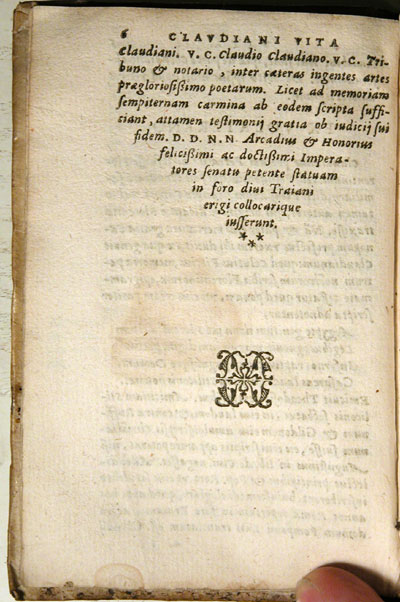 6 CLAVDIANI VITA
Claudiani. V. C. Claudio Claudiano. V. C. Tri-
buno & notario, inter cæteras ingentes artes
prægloriosißimo poetarum. Licet ad memoriam
sempiternam carmina ab eodem scripta suffi-
ciant, attamen testimonij gratia ob iudicij sui
fidem. D. D. N. N. Arcadius & Honorius
felicißimi ac doctißimi Impera-
tores senatu petente statuam
in foro diui Traiani
erigi collocarique
iusserunt.